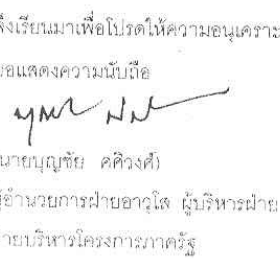 จึงเรียนมาเพื่อโปรดให้ความอนุเคราะ
ขอแสดงความนับถือ
นายบุญชัย ศศิวงศ์)
ผู้อำนวยการฝ่ายอาวุโส ผู้บริหารฝ่าย
ายบริหารโครงการภาครัฐ